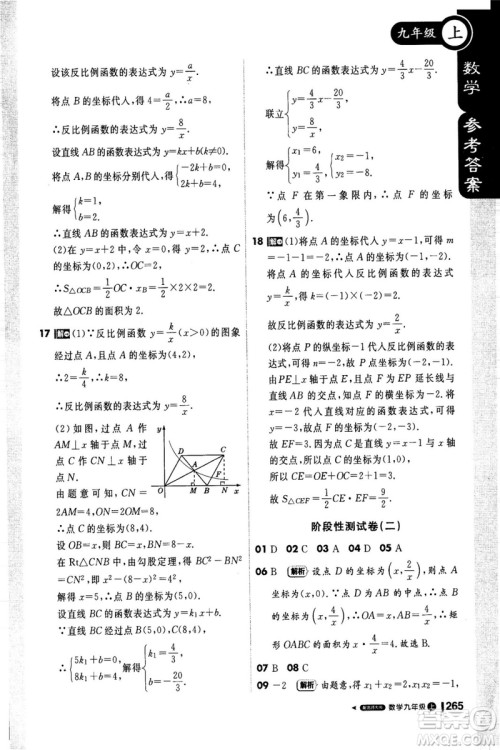 九年级 上
数学 参考答案
设该反比例函数的表达式为 y=a/x.
将点 B 的坐标代入,得 4=a/2,∴a=8,
∴反比例函数的表达式为 y=8/x.
设直线 AB 的函数表达式为 y=kx+b,
将点 A,B 的坐标分别代入,得{-2k+b=0, 2k+b=4,
解得{k=1, b=2.
∴直线 AB 的函数表达式为 y=x+2.
(2)在 y=x+2 中,令 x=0,得 y=2.
∴点 C 的坐标为(0,2),∴OC=2,
∴S△OCB=1/2×2×2=2.
故△OCB 的面积为 2.
17 (1)∵反比例函数 y=k/x(x>0)的图象
经过点 A,点 A 的坐标为(4,2),
∴2=k/4,∴k=8,
∴反比例函数的表达式为 y=8/x.
(2)如图,过点 A 作
AM⊥x 轴于点 M,过
点 C 作 CN⊥x 轴于
点 N.
由题意可知,CN=
2AM=4,ON=
2OM=8,
∴点 C 的坐标为 C(8,4).
设 OB=x,则 BC=x,BN=8-x.
在 Rt△CNB 中,由勾股定理,得
x²-(8-x)²=4²,解得 x=5,
∴点 B 的坐标为(5,0).
设直线 BC 的函数表达式为 y=k₁x+b,
∵直线 BC 过点 B(5,0),C(8,4),
∴{5k₁+b=0, 8k₁+b=4,解得{k₁=4/3, b=-20/3,
∴直线 BC 的表达式为 y=4/3x-20/3.
联立{y=4/3x-20/3, y=8/x,
解得{x₁=6, y₁=4/3,{x₂=-1, y₂=-8.
∵点 F 在第一象限内,∴点 F 的坐标
为(6,4/3).
18 (1)将点 A 的坐标代入 y=x-1,可得 m=
-1-1=-2,∴点 A 的坐标为(-1,-2).
将点 A 的坐标代入 y=k/x,可得
k=-1×(-2)=2,
∴反比例函数的表达式为 y=2/x.
(2)将点 P 的纵坐标-1 代入 y=2/x,得
x=-2,∴点 P 的坐标为(-2,-1).
由 PE⊥x 轴于点 E,EP 延长线与直线
AB 交于点 F,知点 F 的横坐标为-2.
将 x=-2 代入直线对应的函数表达式,
得 y=-3. 故 EF=3. 因为点 C 为直线
与 x 轴的交点,令 y=0,则 x=1,故
EC=3.故 S△CEF=1/2EF·EC=9/2.
阶段性测试卷(二)
01 D 02 C 03 A 04 D 05 A
06 B 解析 设点 D 的坐标为(x,2/x),则点 A
的坐标为(x,0),∴OA=x,AD=2/x,∴矩形
OABC 的面积=x·2/x=2.故选 B.
07 B 08 C
09 -2 解析 ∵函数 y=k/x 与函数 y=x-1
数学九年级 上 265